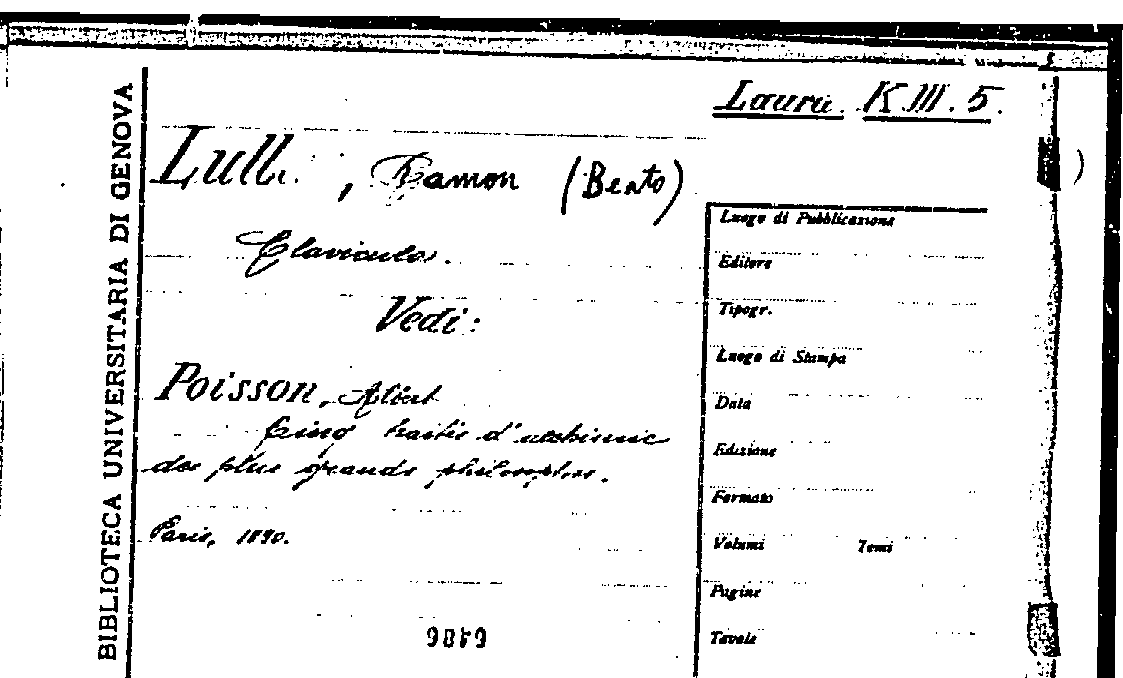 BIBLIOTECA UNIVERSITARIA DI GENOVA
Laura. K.III.5.
Lull. , Ramon (Beato)
Clavicula.
Vedi:
Poisson, Albert
Cinq traités d'alchimie
des plus grands philosophes.
Paris, 1890.
Luogo di Pubblicazione
Editore
Tipogr.
Luogo di Stampa
Data
Edizione
Formato
Volumi Tomi
Pagine
Tavole